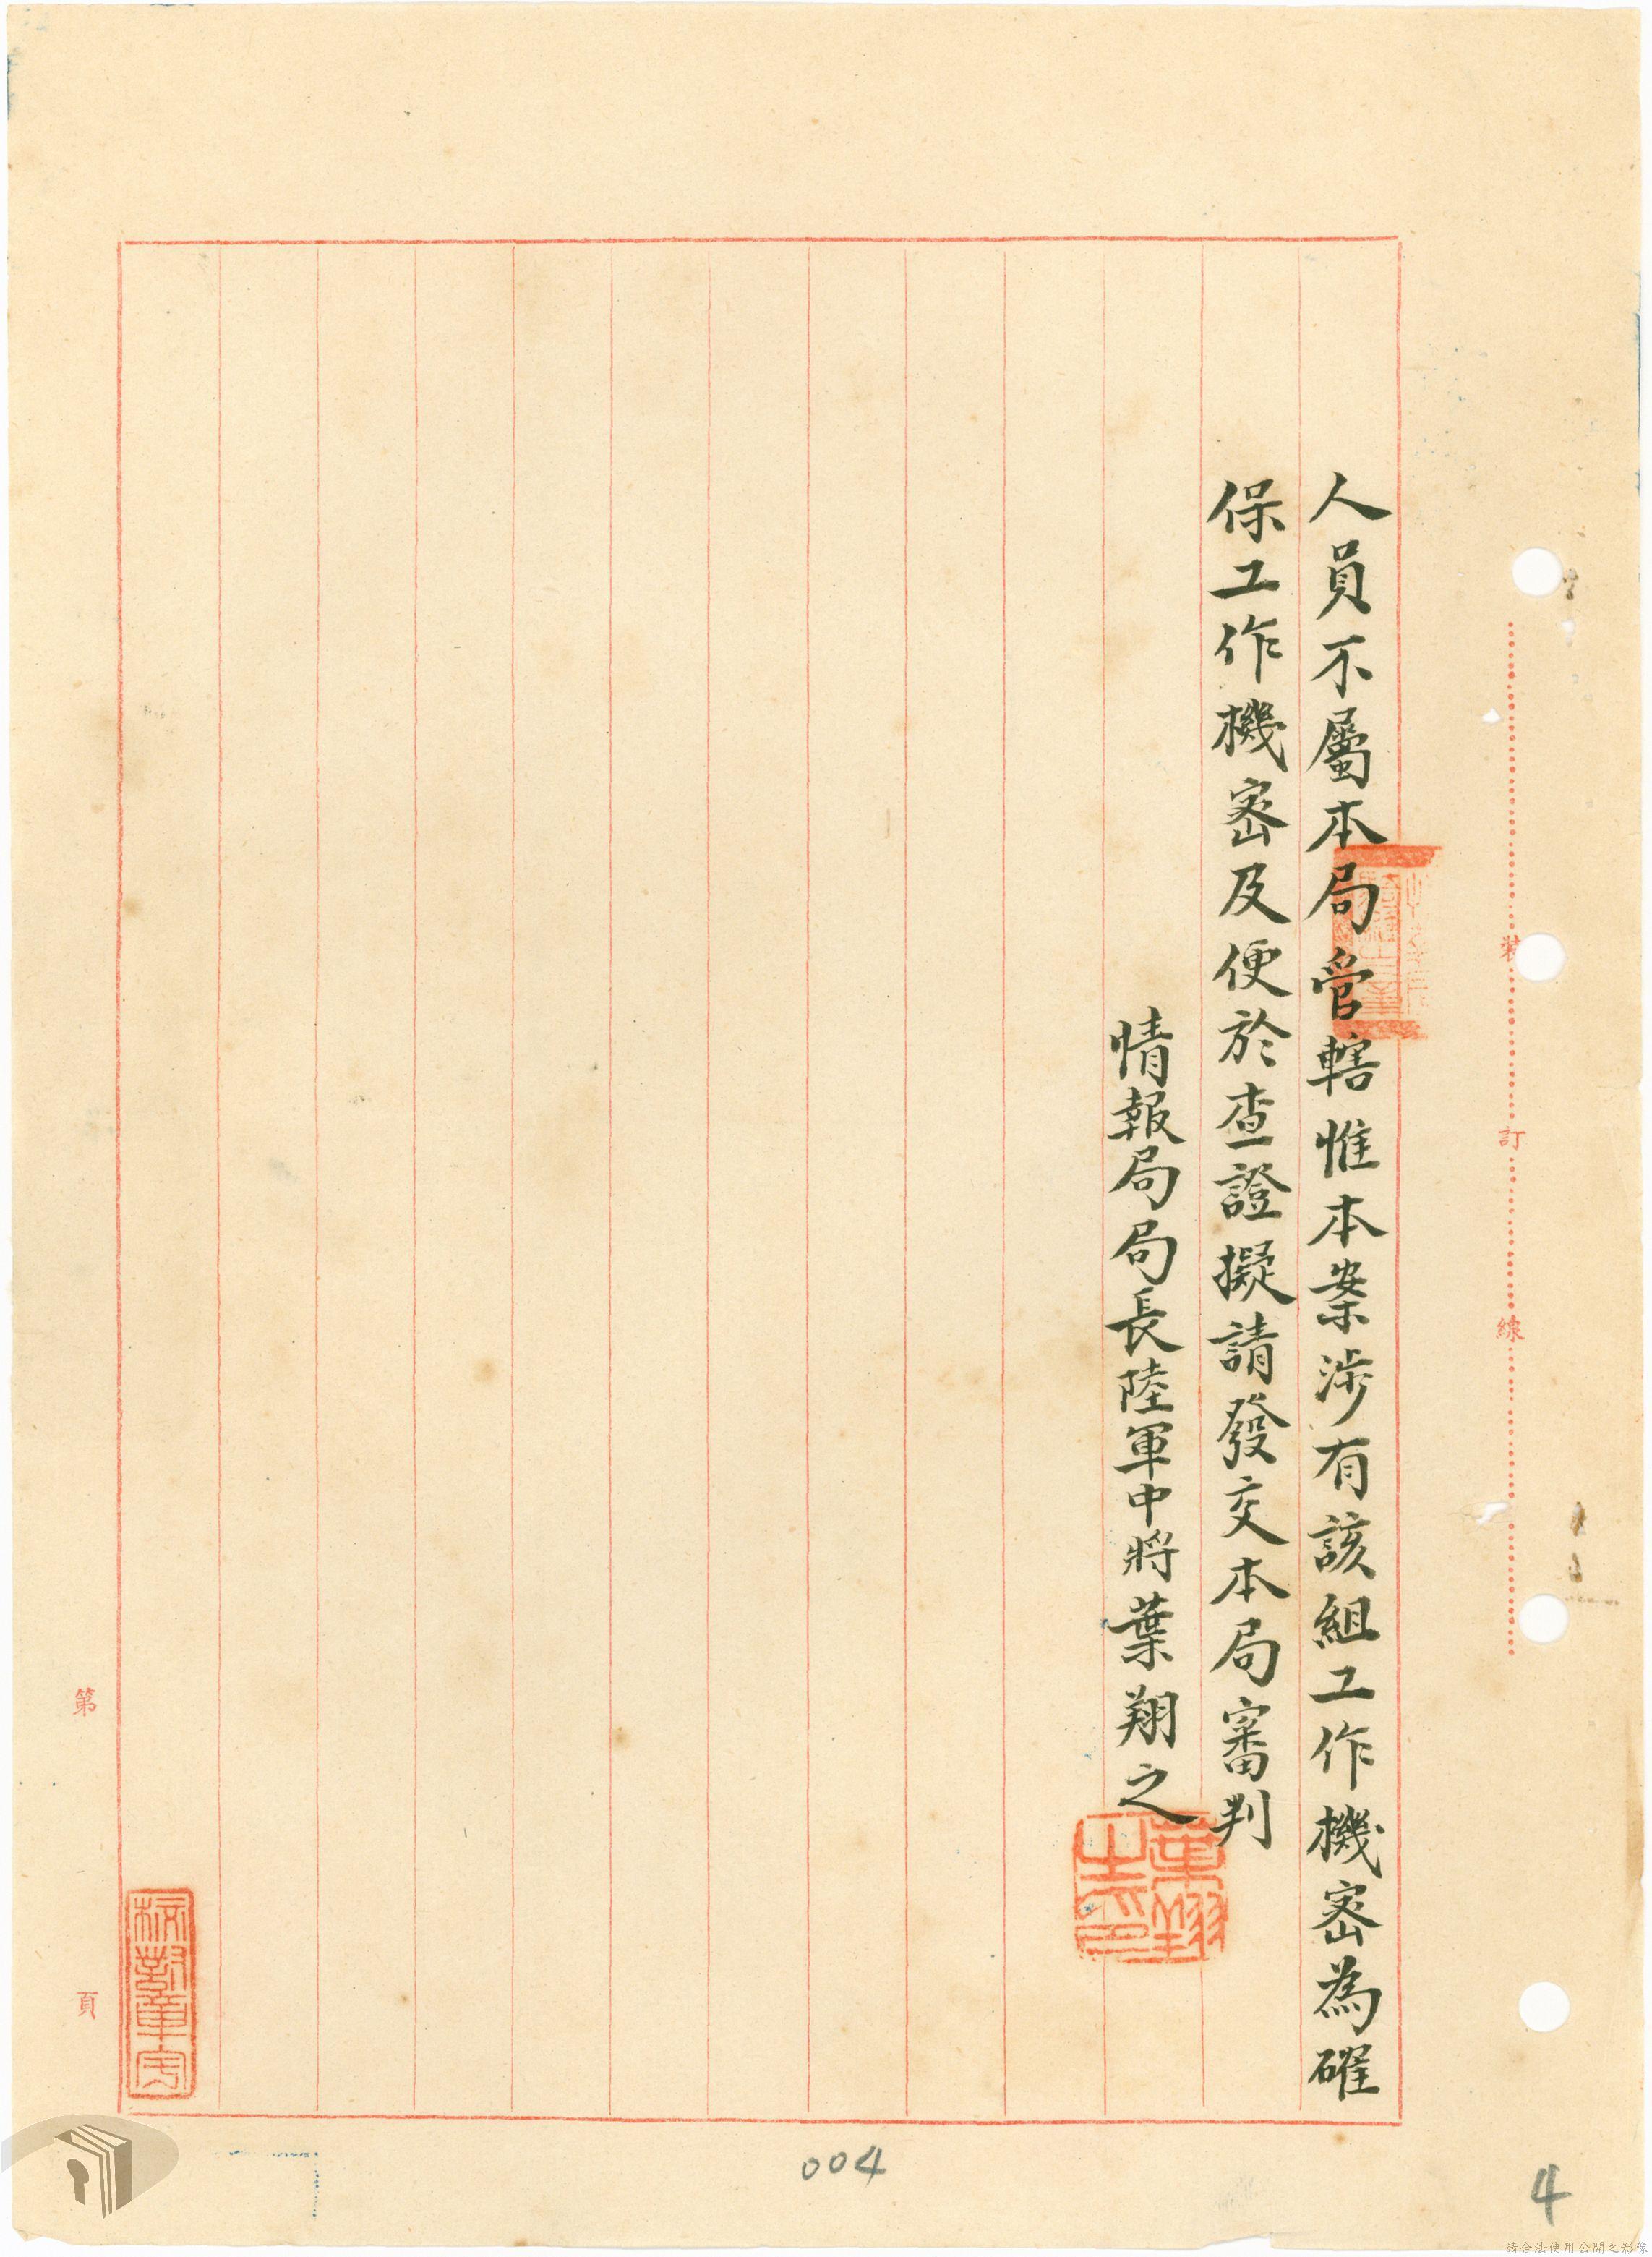 人員不屬本局管轄惟本案涉有該組工作機密為確
保工作機密及便於查證擬請發交本局審判
情報局局長陸軍中將葉翔之
葉翔之印
裝訂線
第頁
校對章
004
4
請合法使用公開之影像